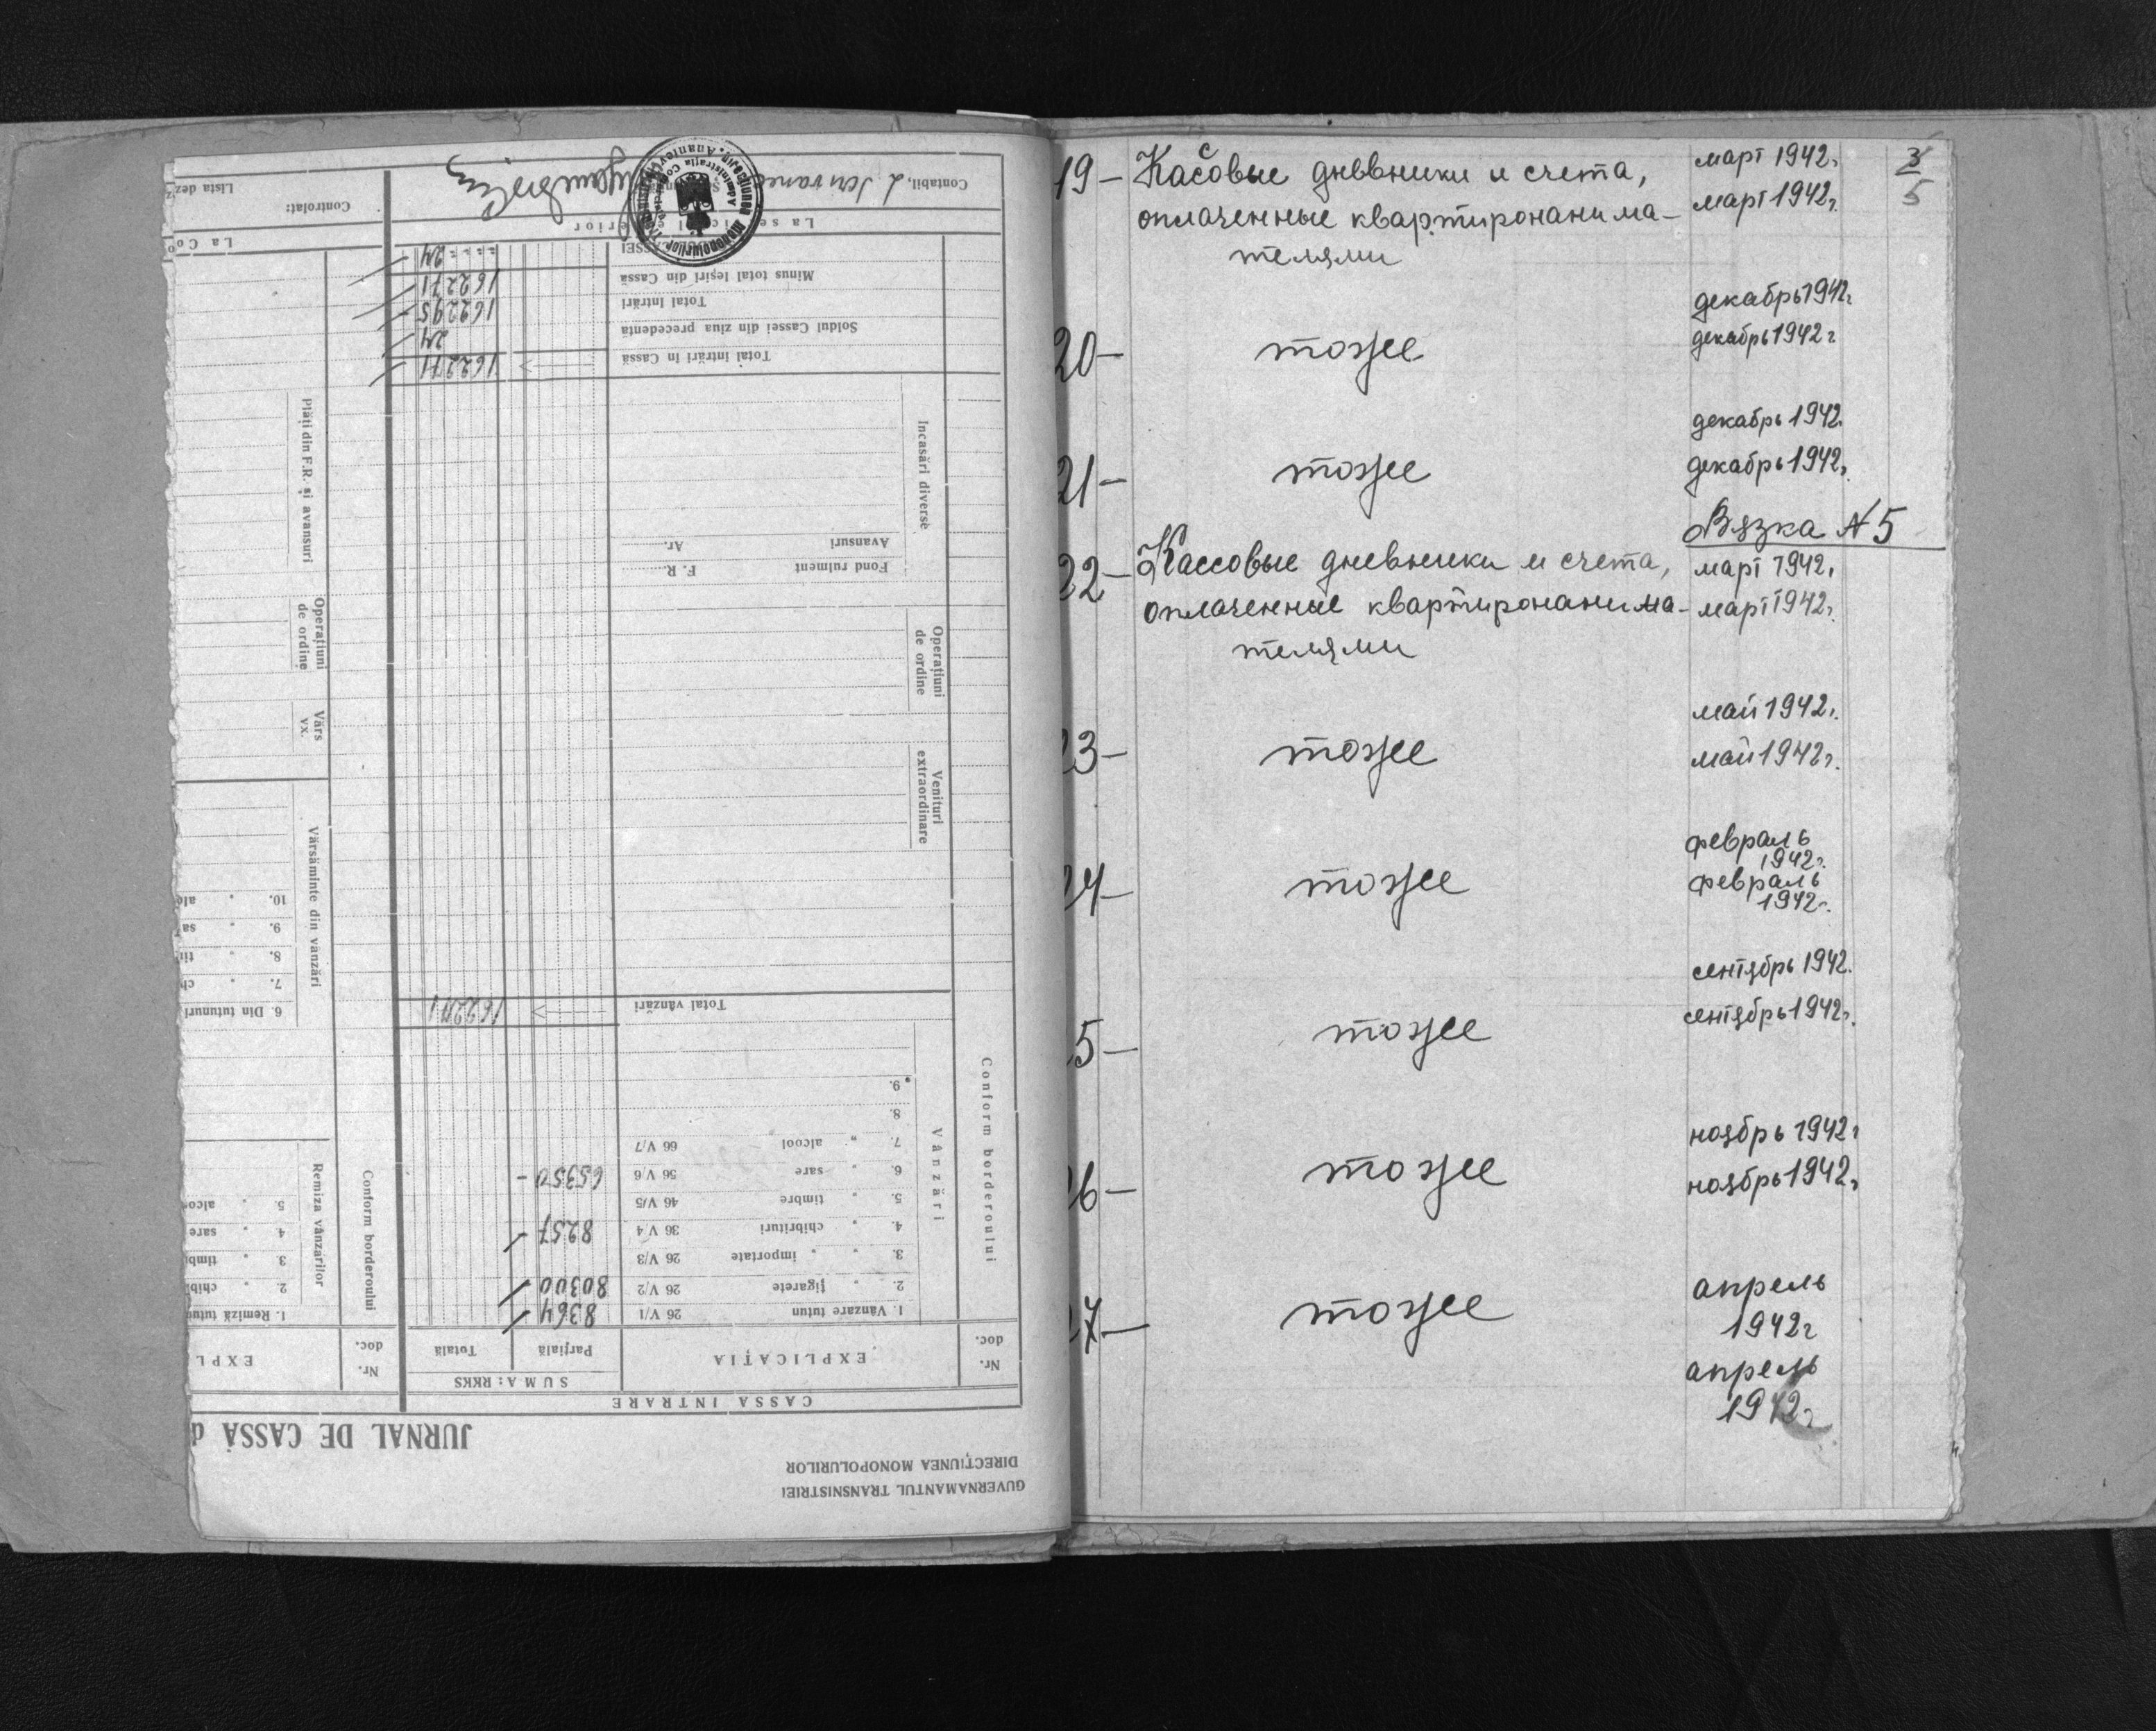 GUVERNAMANTUL TRANSNISTRIEI
DIRECȚIUNEA MONOPOLURILOR
JURNAL DE CASSĂ d
CASSA INTRARE
Nr. doc.
EXPLICAȚIA
SUMA: RKKS
Parțială
Totală
Nr. doc.
EXPL
Conform borderoului
Vânzări
1. Vânzare tutun 26 V/1 8364
2. " țigarete 26 V/2 80300
3. " " importate 26 V/3
4. " chibrituri 36 V 4 8257
5. " timbre 46 V/5
6. " sare 56 V 6 65350 -
7. " alcool 66 V/7
8.
9.
Total vânzări 162271
Venituri extraordinare
Operațiuni de ordine
Incasări diverse
Fond rulment F. R.
Avansuri Ar.
Total intrări în Cassă 162271
Soldul Cassei din ziua precedentă 24
Total Intrări 162295
Minus total Ieșiri din Cassă 162271
24
Contabil,
Conform borderoului
Remiza vânzarilor
1. Remiză tutun
2. " chib
3. " timb
4. " sare
5. " alco
Vărsăminte din vânzări
6. Din tutunuri
7. " ch
8. " ti
9. " sa
10. " al
Vărs
vx.
Operațiuni de ordine
Plăți din F.R. și avansuri
La Co
Controlat:
Lista dez
3
5
19 – Кассовые дневники и счета, март 1942г
оплаченные квартиронанима- март 1942г.
телями
декабрь 1942г
20 – тоже декабрь 1942г
декабрь 1942
21 – тоже декабрь 1942г.
Вязка № 5
22 – Кассовые дневники и счета, март 1942г
оплаченные квартиронанима- март 1942г.
телями
май 1942г.
3 – тоже май 1942г.
февраль
1942г.
4 – тоже февраль
1942г.
сентябрь 1942.
5 – тоже сентябрь 1942г.
ноябрь 1942г
6 – тоже ноябрь 1942г
апрель
7 – тоже 1942г
апрель
1942г